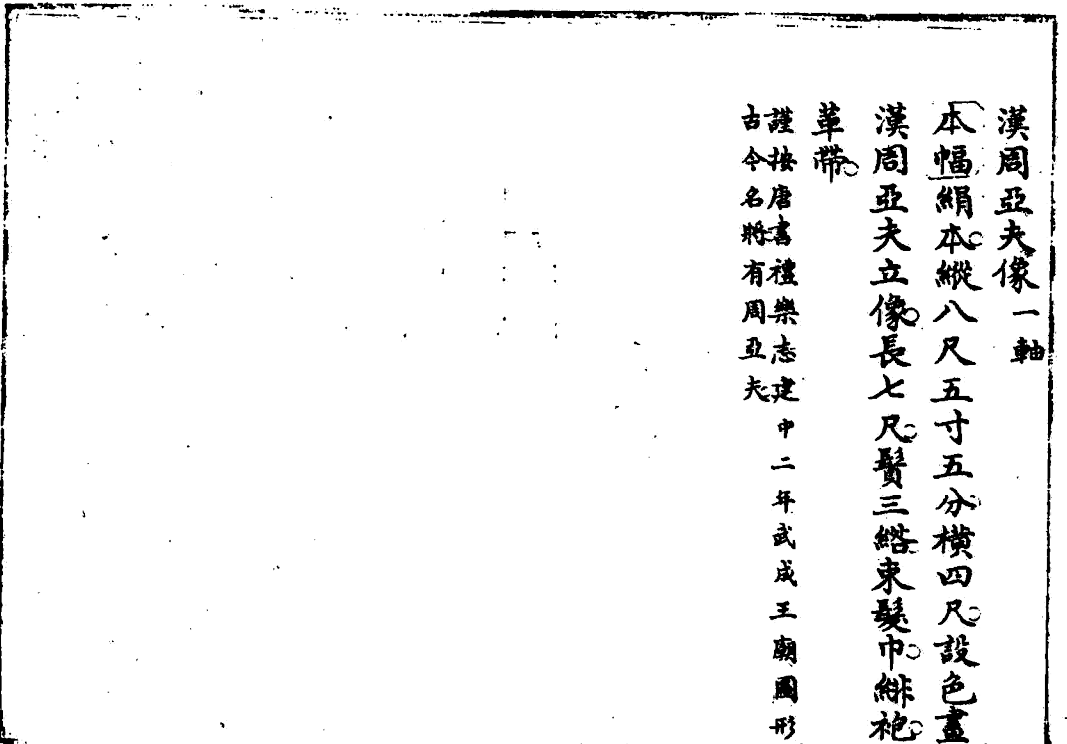 漢周亞夫像一軸
本幅絹本縱八尺五寸五分橫四尺設色畫
漢周亞夫立像長七尺鬢三綹束髮巾緋袍
革帶
謹按唐書禮樂志建中二年武成王廟圖形
古今名將有周亞夫